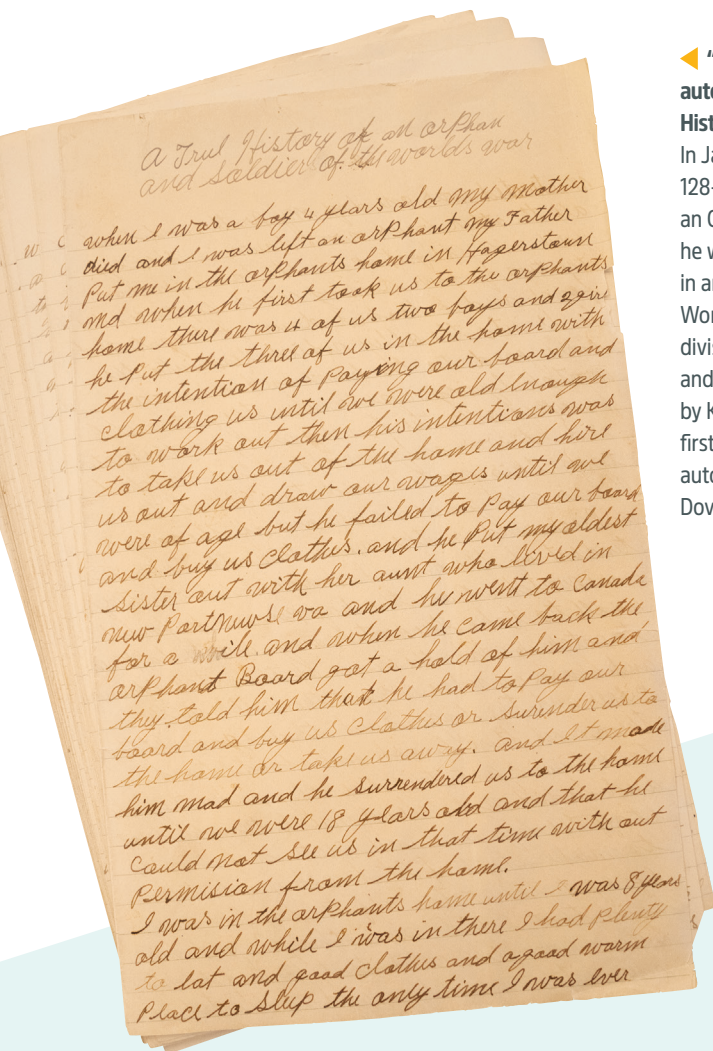 A True History of an orphan
and soldier of the worlds war
when I was a boy 4 years old my mother
died and I was left an orphant my Father
Put me in the orphants home in Hagerstown
md when he first took us to the orphants
home there was 4 of us two boys and 2 girl
he Put the three of us in the home with
the intention of Paying our board and
clothing us until we were old enough
to work out then his intentions was
to take us out of the home and hire
us out and draw our wages until we
were of age but he failed to Pay our board
and buy us clothes. and he Put my oldest
sister out with her aunt who lived in
new Portnewse va and he went to Canada
for a while and when he came back the
orphant Board got a hold of him and
they told him that he had to Pay our
board and buy us clothes or surender us to
the home or take us away. and It made
him mad and he surrendered us to the home
until we were 18 years old and that he
could not see us in that time with out
Permision from the home.
I was in the orphants home until I was 8 years
old and while I was in there I had Plenty
to eat and good clothes and a good warm
Place to sleep the only time I was ever
◀ "
auto
Hist
In Ja
128-
an O
he w
in a
Wor
divis
and
by K
first
auto
Dov